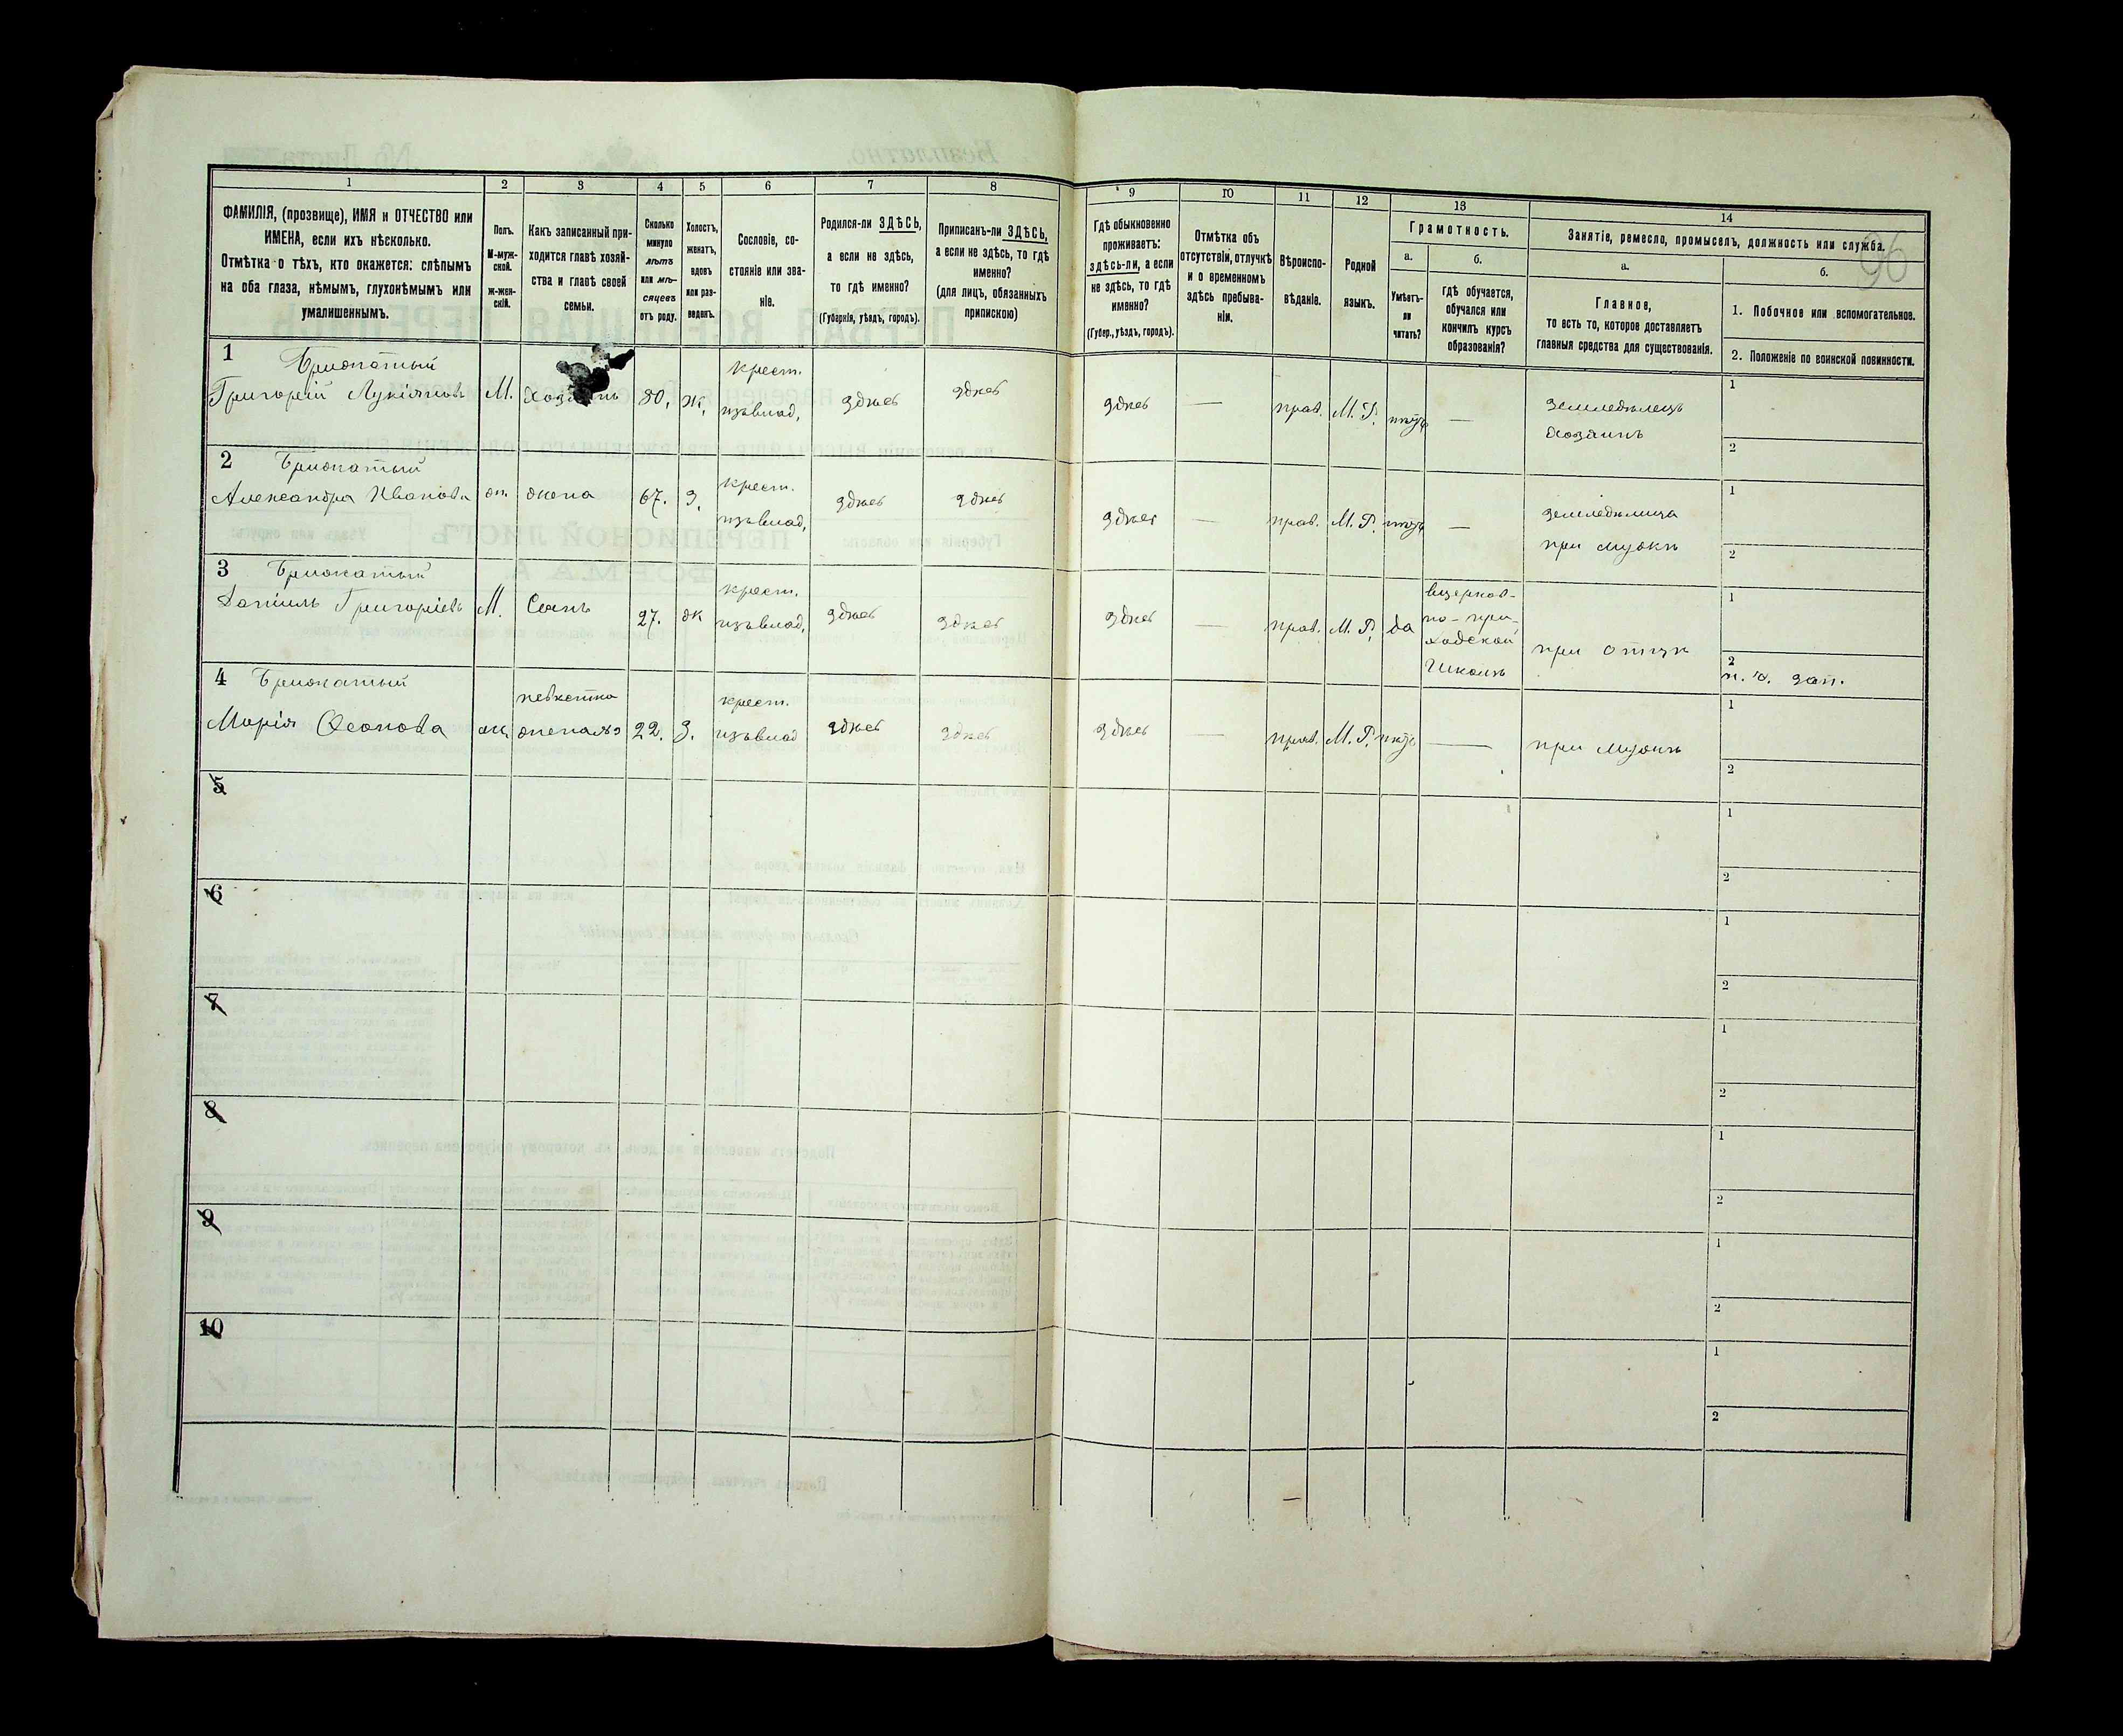 96
1 2 3 4 5 6 7 8 9 10 11 12 13 14
ФАМИЛІЯ, (прозвище), ИМЯ и ОТЧЕСТВО или
ИМЕНА, если ихъ нѣсколько.
Отмѣтка о тѣхъ, кто окажется: слѣпымъ
на оба глаза, нѣмымъ, глухонѣмымъ или
умалишеннымъ.
Полъ.
М-муж-
ской.
ж-жен-
скій.
Какъ записанный при-
ходится главѣ хозяй-
ства и главѣ своей
семьи.
Сколько
минуло
лѣтъ
или мѣ-
сяцевъ
отъ роду.
Холостъ,
женатъ,
вдовъ
или раз-
веденъ.
Сословіе, со-
стояніе или зва-
ніе.
Родился-ли ЗДѢСЬ,
а если не здѣсь,
то гдѣ именно?
(Губернія, уѣздъ, городъ).
Приписанъ-ли ЗДѢСЬ,
а если не здѣсь, то гдѣ
именно?
(для лицъ, обязанныхъ
припискою)
Гдѣ обыкновенно
проживаетъ:
здѣсь-ли, а если
не здѣсь, то гдѣ
именно?
(Губер., уѣздъ, городъ).
Отмѣтка объ
отсутствіи, отлучкѣ
и о временномъ
здѣсь пребыва-
ніи.
Вѣроиспо-
вѣданіе.
Родной
языкъ.
Грамотность.
а.
Умѣетъ-
ли
читать?
б.
гдѣ обучается,
обучался или
кончилъ курсъ
образованія?
Занятіе, ремесло, промыселъ, должность или служба.
а.
Главное,
то есть то, которое доставляетъ
главныя средства для существованія.
б.
1. Побочное или вспомогательное.
2. Положеніе по воинской повинности.
1
Григорій Лукіяновъ М. 80, ж,
крест.
изъ влад,
здѣсь здѣсь здѣсь — прав. М. Р. нѣтъ —
земледѣлецъ
хозяинъ
1
2
2
Александра Иванова ж. жена 67. З,
крест.
изъ влад,
здѣсь здѣсь здѣсь — прав. М. Р. нѣтъ —
земледѣлица
при мужѣ
1
2
3
Даніилъ Григоріевъ М. Сынъ 27. ж
крест.
изъ влад,
здѣсь здѣсь здѣсь — прав. М. Р, да
вцерков-
но-при-
ходской
школѣ
при отцѣ
1
2
зап.
4
Марія
невѣстка
ж, 22. З.
крест.
изъ влад
здѣсь здѣсь здѣсь — прав. М. Р. нѣтъ —
при мужѣ
1
2
5
1
2
6
1
2
7
1
2
8
1
2
9
1
2
10
1
2